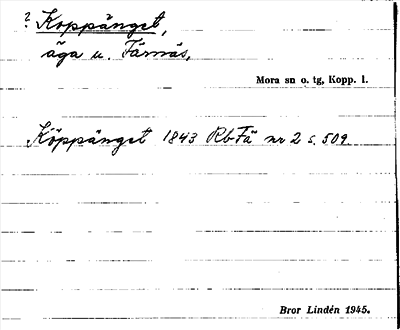 ? Koppänget,
äga u. Färnäs,
Mora sn o. tg, Kopp. l.
Köppänget 1843 Rb Fä nr 2 s. 509
Bror Lindén 1945.